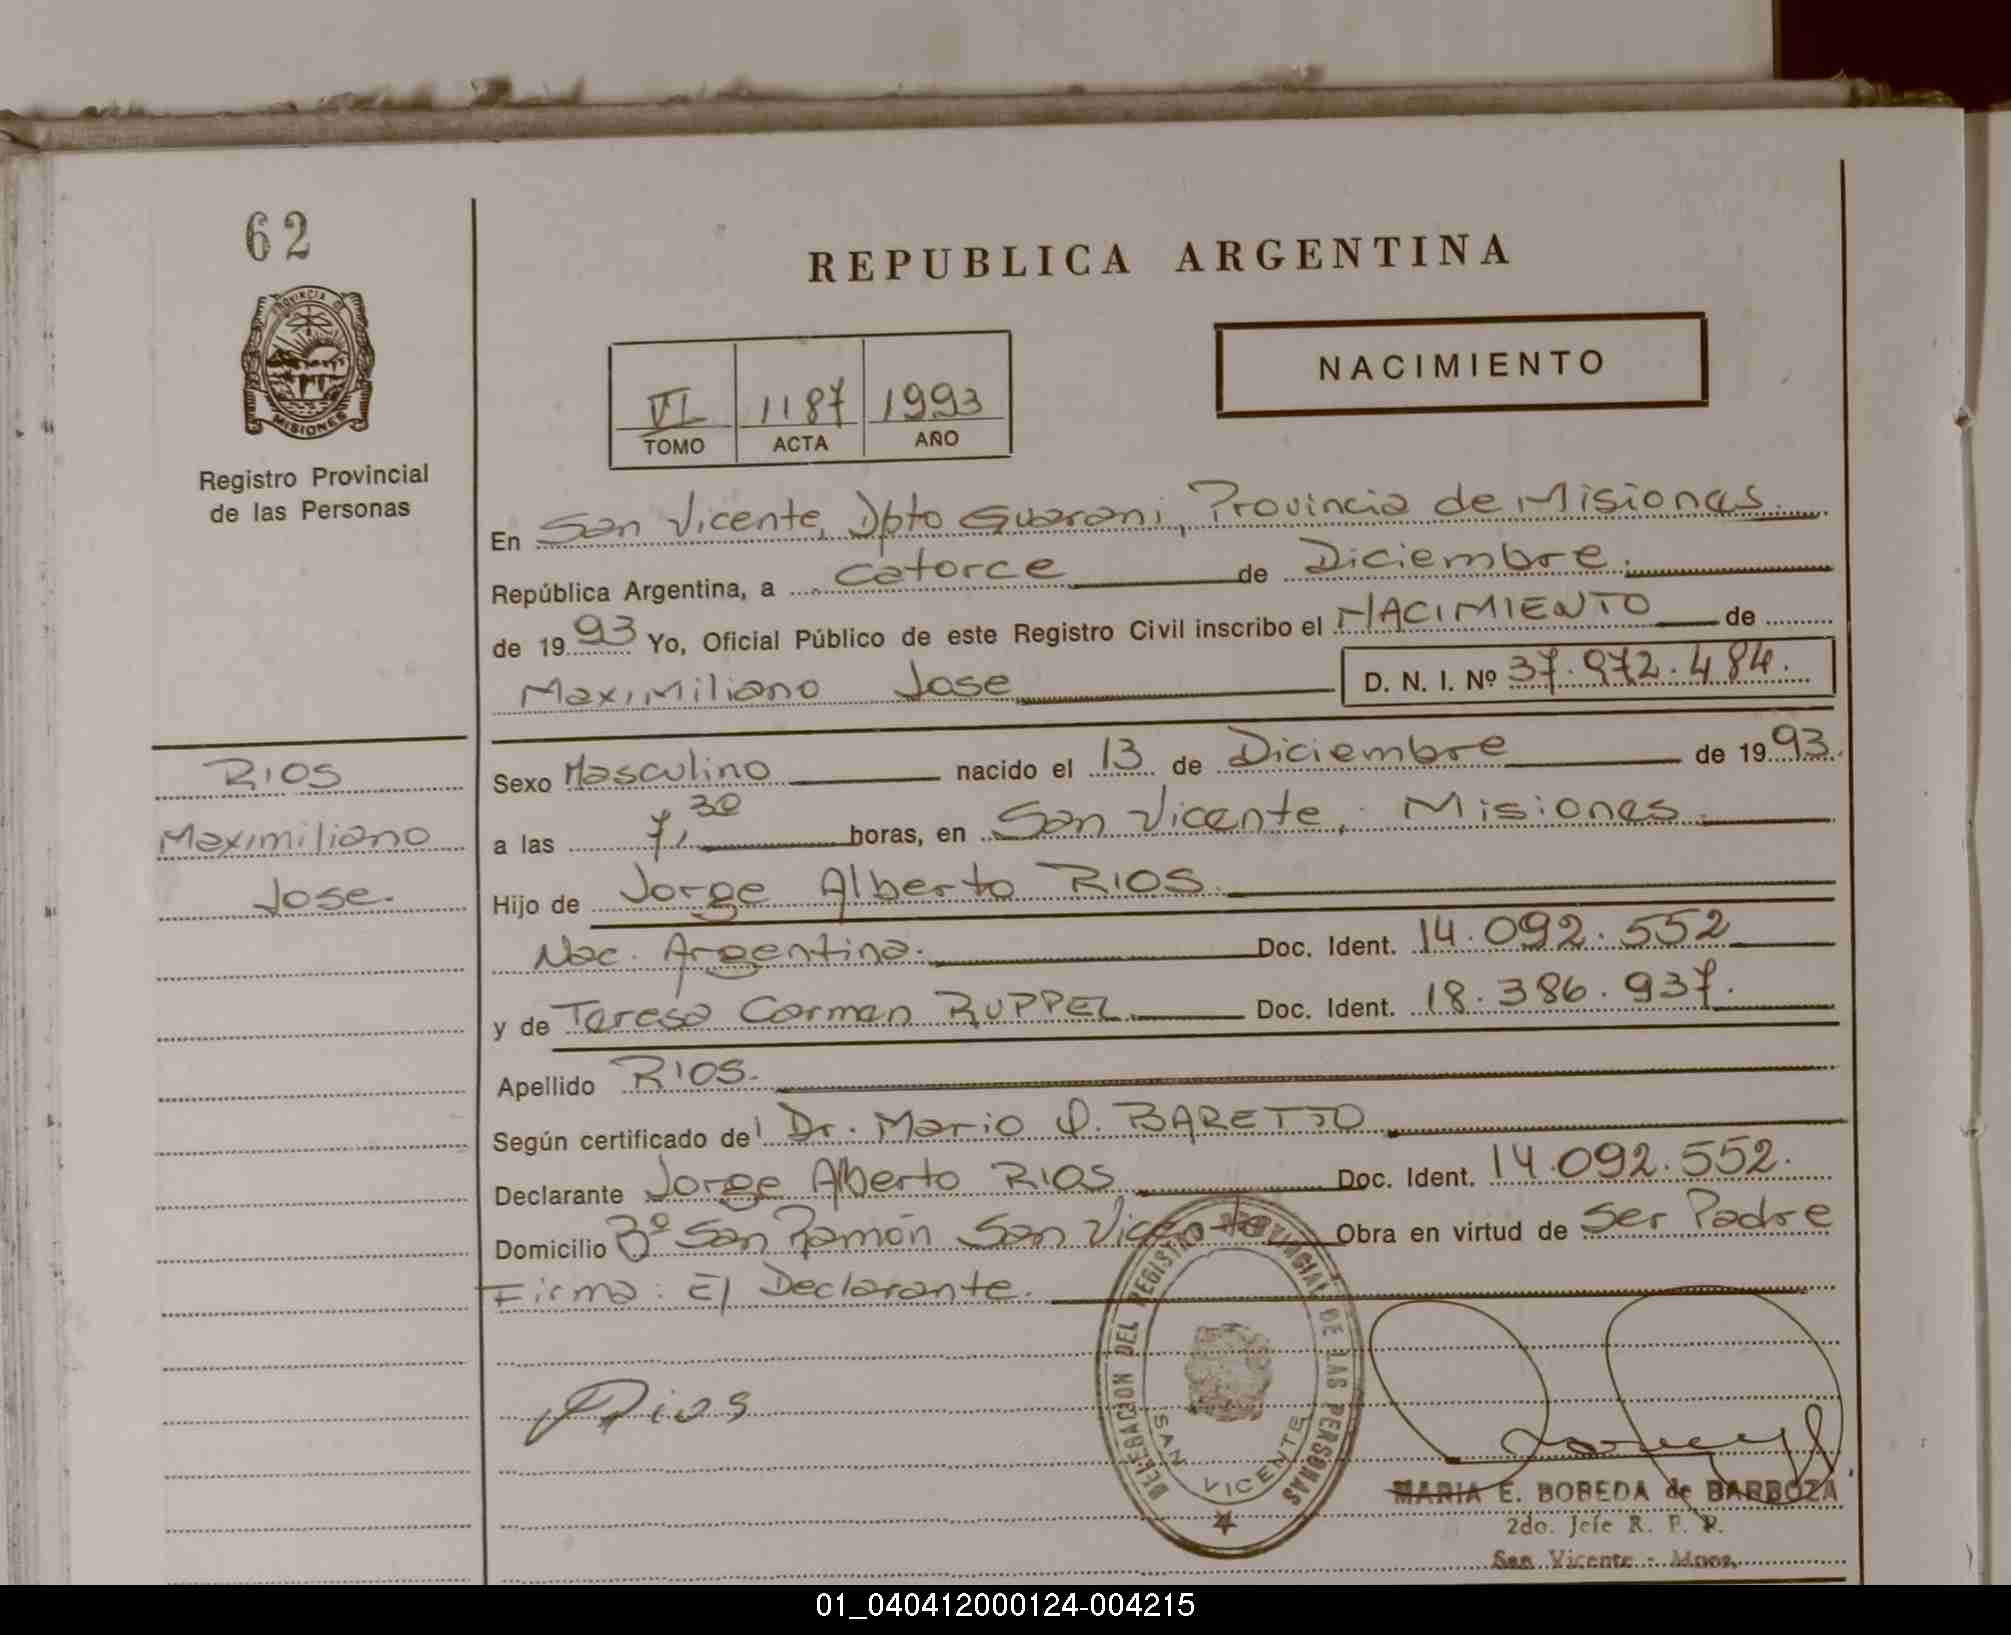 62
REPUBLICA ARGENTINA
PROVINCIA DE
MISIONES
Registro Provincial
de las Personas
NACIMIENTO
VI 1187 1993
TOMO ACTA AÑO
En San Vicente, Dpto Guarani, Provincia de Misiones.
República Argentina, a catorce de Diciembre.
de 1993 Yo, Oficial Público de este Registro Civil inscribo el NACIMIENTO de
Maximiliano Jose D. N. I. Nº 37.972.484.
RIOS
Maximiliano
Jose.
Sexo Masculino nacido el 13 de Diciembre de 1993.
a las 7,30 horas, en San Vicente, Misiones.
Hijo de Jorge Alberto RIOS.
Nac. Argentina. Doc. Ident. 14.092.552
y de Teresa Carmen RUPPEL. Doc. Ident. 18.386.937.
Apellido RIOS.
Según certificado de Dr. Mario D. BARETTO
Declarante Jorge Alberto RIOS Doc. Ident. 14.092.552.
Domicilio Bº San Ramón San Vicente Obra en virtud de Ser Padre
Firma: El Declarante.
Rios
DELEGACION DEL REGISTRO PROVINCIAL DE LAS PERSONAS
SAN VICENTE
MARIA E. BOBEDA de BARBOZA
2do. Jefe R. P. P.
San Vicente - Mnes.
01_040412000124-004215